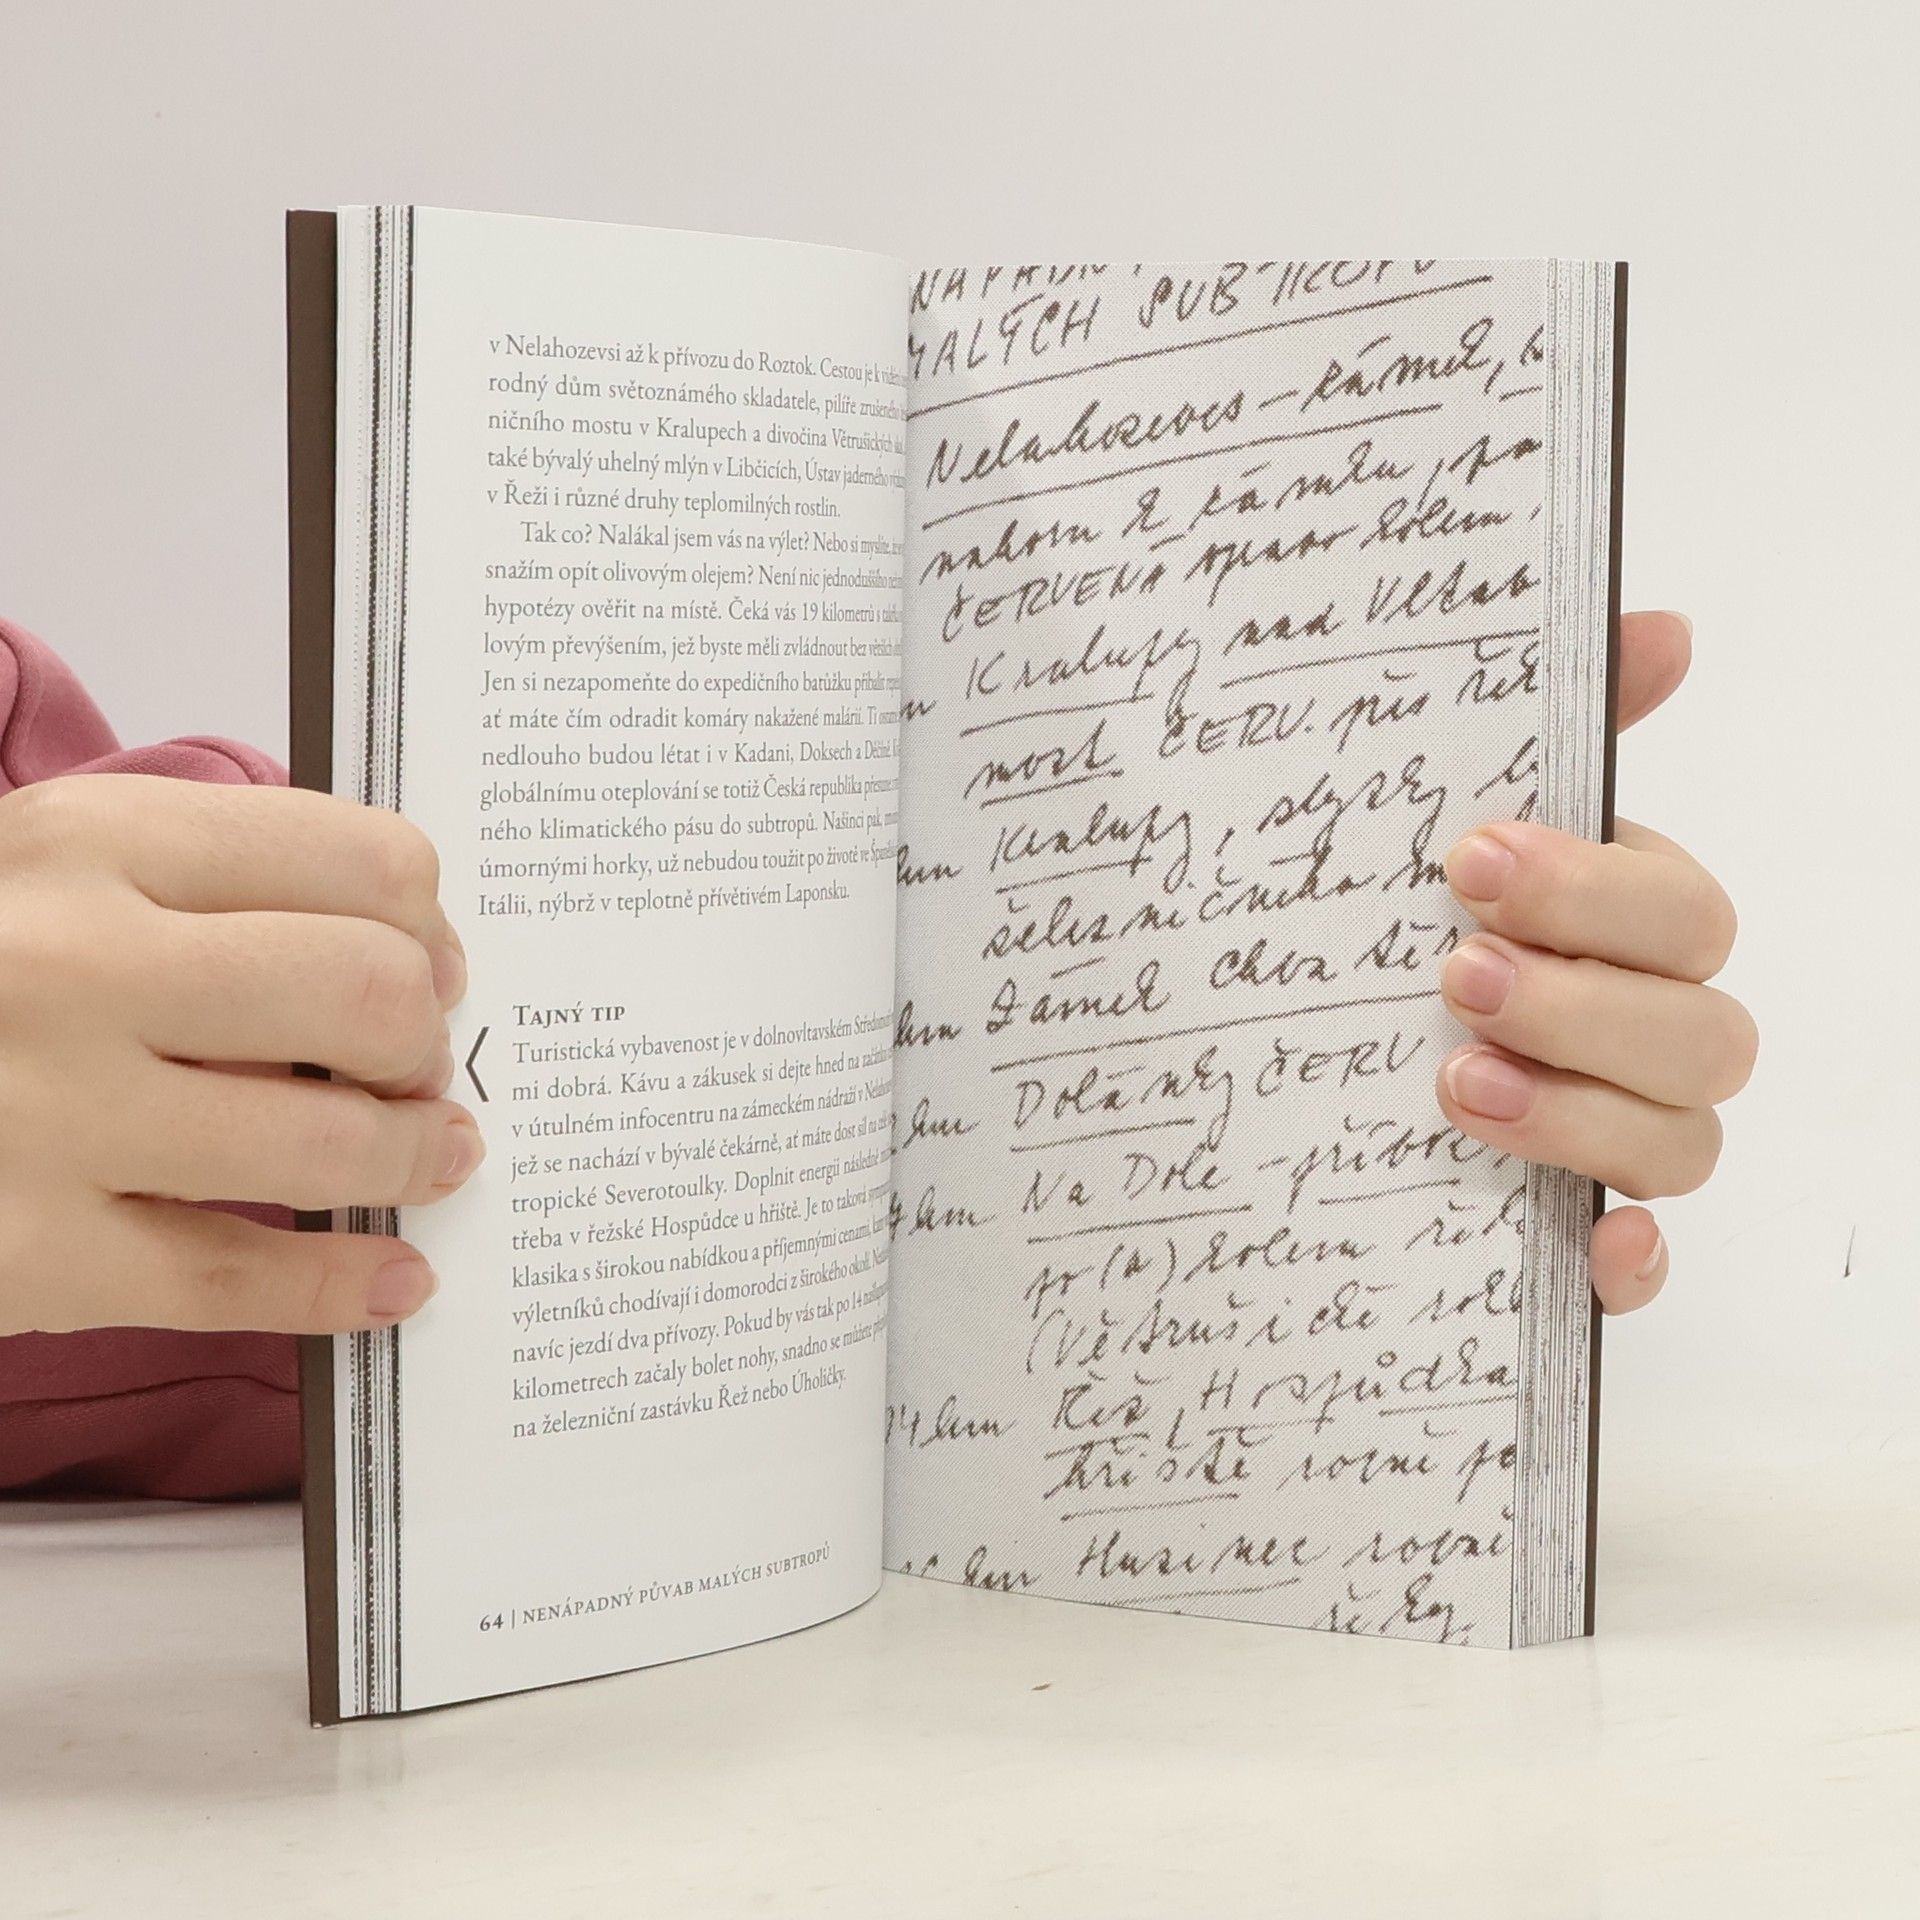 v Nelahozevsi až k přívozu do Roztok. Cestou je k vidění
rodný dům světoznámého skladatele, pilíře zrušeného
ničního mostu v Kralupech a divočina Větrušických
také bývalý uhelný mlýn v Libčicích, Ústav jaderného
v Řeži i různé druhy teplomilných rostlin.
Tak co? Nalákal jsem vás na výlet? Nebo si myslíte,
snažím opít olivovým olejem? Není nic jednoduššího
hypotézy ověřit na místě. Čeká vás 19 kilometrů s
lovým převýšením, jež byste měli zvládnout bez větších
Jen si nezapomeňte do expedičního batůžku přibalit
ať máte čím odradit komáry nakažené malárií. Ti
nedlouho budou létat i v Kadani, Doksech a Děčíně.
globálnímu oteplování se totiž Česká republika přesune
ného klimatického pásu do subtropů. Našinci pak,
úmornými horky, už nebudou toužit po životě ve
Itálii, nýbrž v teplotně přívětivém Laponsku.
TAJNÝ TIP
Turistická vybavenost je v dolnovltavském
mi dobrá. Kávu a zákusek si dejte hned na
v útulném infocentru na zámeckém nádraží v
jež se nachází v bývalé čekárně, ať máte dost sil na
tropické Severotoulky. Doplnit energii následně
třeba v řežské Hospůdce u hřiště. Je to taková
klasika s širokou nabídkou a příjemnými cenami, kam
výletníků chodívají i domorodci z širokého okolí.
navíc jezdí dva přívozy. Pokud by vás tak po 14
kilometrech začaly bolet nohy, snadno se můžete
na železniční zastávku Řež nebo Úholičky.
64 | NENÁPADNÝ PŮVAB MALÝCH SUBTROPŮ
MALÝCH SUBTROPŮ
Nelahozeves – zámek,
nahoru k zámku, po
ČERVENÁ vpravo kolem
Kralupy nad Vltav
most ČERV. přes řek
Kralupy, zbytky
železničního
Zámek Chvatěr
km Dolánky ČERV
km Na Dole – přívoz
po (a) kolem řeky
(Větrušické rokl
14 km Řež, Hospůdka
hřiště rovně po
km Husinec rovně
řeky.